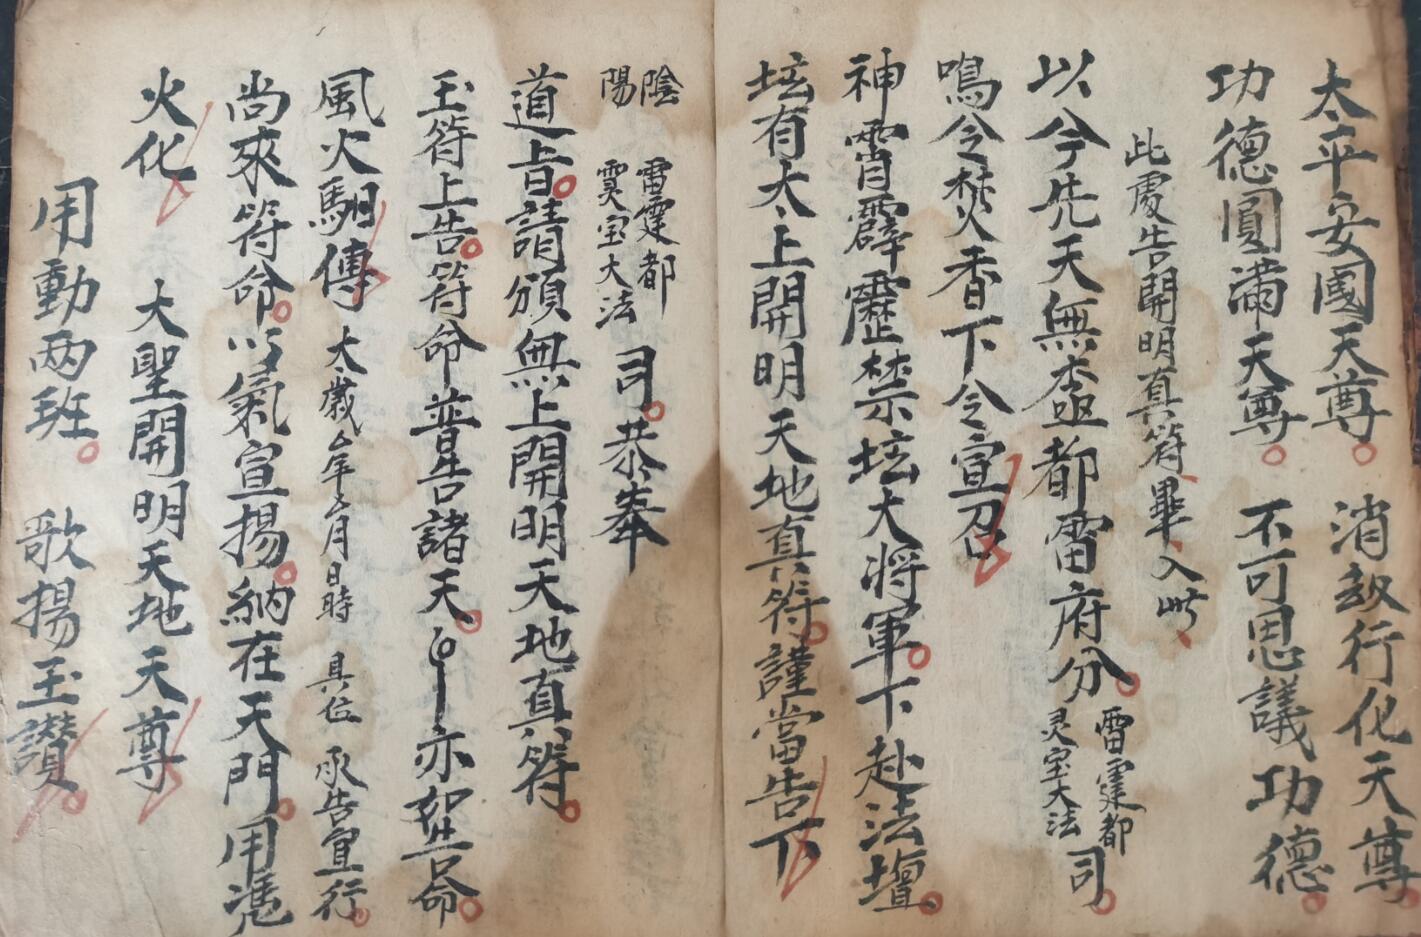 太平安國天尊 消劫行化天尊
功德圓滿天尊 不可思議功德
此處告開明真符畢入此
以今先天無盃都雷府分 雷霆都 灵宝大法 司
鳴令焚香下令宣召
神霄霹靂禁坛大將軍下赴法壇
坛有太上開明天地真符謹當告下
陰陽 雷霆都 霛宝大法 司恭奉
道旨請頒無上開明天地真符
玉符上告符命普告諸天 亦 告命
風火馹傳 太歲 年 月 日時 具位 承告宣行
尚來符命以氣宣揚納在天門用憑
火化 大聖開明天地天尊
用動兩班 歌揚玉讚